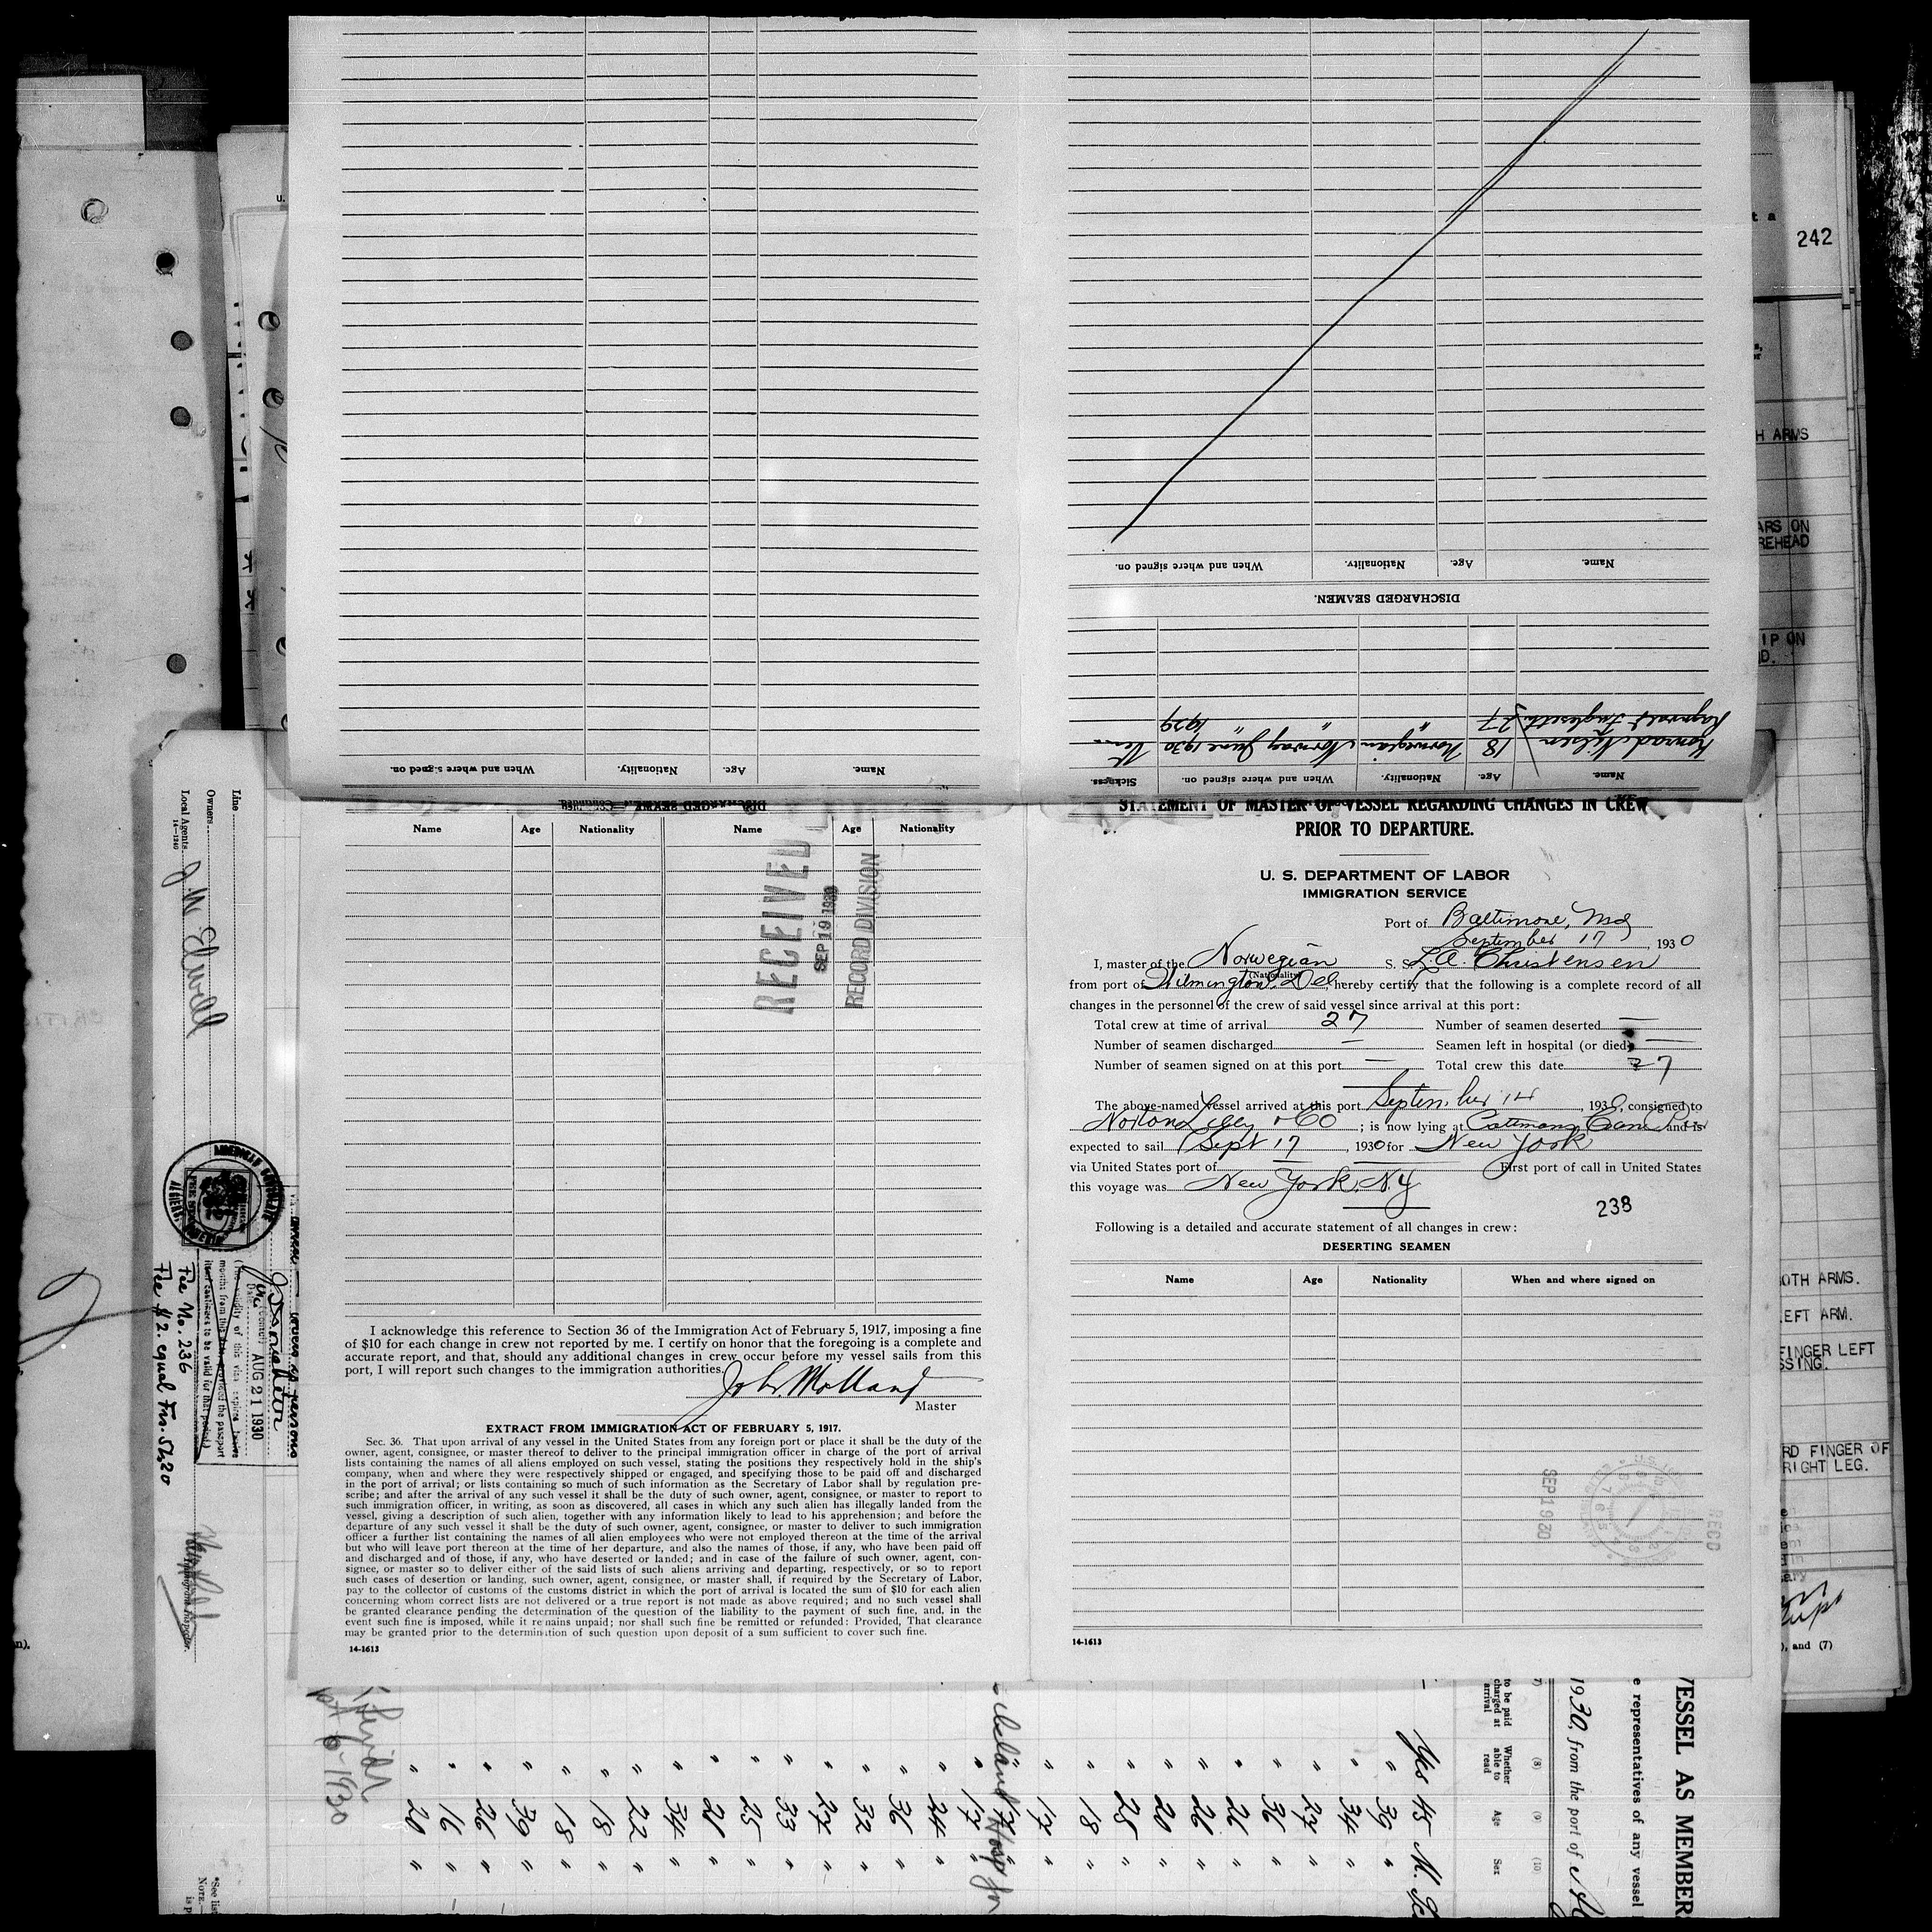 242
DISCHARGED SEAMEN.
Name.
Age.
Nationality.
When and where signed on.
Name.
Age.
Nationality.
When and where signed on.
Sickness.
Konrad Nilsen 18 Norwegian Norway June 1930
27 " " 1929
Name.
Age.
Nationality.
When and where signed on.
DISCHARGED SEAMEN
Name Age Nationality Name Age Nationality
RECEIVED
SEP 19 1930
RECORD DIVISION
I acknowledge this reference to Section 36 of the Immigration Act of February 5, 1917, imposing a fine
of $10 for each change in crew not reported by me. I certify on honor that the foregoing is a complete and
accurate report, and that, should any additional changes in crew occur before my vessel sails from this
port, I will report such changes to the immigration authorities.
Master
EXTRACT FROM IMMIGRATION ACT OF FEBRUARY 5, 1917.
Sec. 36. That upon arrival of any vessel in the United States from any foreign port or place it shall be the duty of the
owner, agent, consignee, or master thereof to deliver to the principal immigration officer in charge of the port of arrival
lists containing the names of all aliens employed on such vessel, stating the positions they respectively hold in the ship's
company, when and where they were respectively shipped or engaged, and specifying those to be paid off and discharged
in the port of arrival; or lists containing so much of such information as the Secretary of Labor shall by regulation pre-
scribe; and after the arrival of any such vessel it shall be the duty of such owner, agent, consignee, or master to report to
such immigration officer, in writing, as soon as discovered, all cases in which any such alien has illegally landed from the
vessel, giving a description of such alien, together with any information likely to lead to his apprehension; and before the
departure of any such vessel it shall be the duty of such owner, agent, consignee, or master to deliver to such immigration
officer a further list containing the names of all alien employees who were not employed thereon at the time of the arrival
but who will leave port thereon at the time of her departure, and also the names of those, if any, who have been paid off
and discharged and of those, if any, who have deserted or landed; and in case of the failure of such owner, agent, con-
signee, or master so to deliver either of the said lists of such aliens arriving and departing, respectively, or so to report
such cases of desertion or landing, such owner, agent, consignee, or master shall, if required by the Secretary of Labor,
pay to the collector of customs of the customs district in which the port of arrival is located the sum of $10 for each alien
concerning whom correct lists are not delivered or a true report is not made as above required; and no such vessel shall
be granted clearance pending the determination of the question of the liability to the payment of such fine, and, in the
event such fine is imposed, while it remains unpaid; nor shall such fine be remitted or refunded: Provided, That clearance
may be granted prior to the determination of such question upon deposit of a sum sufficient to cover such fine.
14-1613
STATEMENT OF MASTER OF VESSEL REGARDING CHANGES IN CREW
PRIOR TO DEPARTURE.
U. S. DEPARTMENT OF LABOR
IMMIGRATION SERVICE
Port of Baltimore, Md
September 17, 1930
I, master of the Norwegian S. S. L.A. Christensen
(Nationality)
from port of Wilmington, Del, hereby certify that the following is a complete record of all
changes in the personnel of the crew of said vessel since arrival at this port:
Total crew at time of arrival 27 Number of seamen deserted —
Number of seamen discharged — Seamen left in hospital (or died) —
Number of seamen signed on at this port — Total crew this date 27
The above-named vessel arrived at this port September 14, 1930, consigned to
Norton Lilly & Co; is now lying at and is
expected to sail Sept 17, 1930 for New York
via United States port of First port of call in United States
this voyage was New York, N.Y.
238
Following is a detailed and accurate statement of all changes in crew:
DESERTING SEAMEN
Name Age Nationality When and where signed on
SEP 19 30
REC'D
14-1613
Line
Owners
Local Agents
14—1240
AMERICAN CONSULATE
ALGIERS,
AUG 21 1930
Fee No. 236
Fee $2. equal Frs. 51.20
H ARMS
ARS ON
REHEAD
IP ON
OTH ARMS.
LEFT ARM.
FINGER LEFT
SSING.
RD FINGER OF
RIGHT LEG.
), and (7)
VESSEL AS MEMBERS
e representatives of any vessel
1930, from the port of
(7) (8) (9) (10)
to be paid
charged at
arrival
Whether
able to
read
Age
Sex
Yes 45 M.
" 39 "
" 34 "
" 27 "
" 36 "
" 26 "
" 26 "
" 20 "
" 28 "
" 18 "
" 17 "
" 17 "
" 24 "
" 36 "
" 32 "
" 27 "
" 33 "
" 25 "
" 21 "
" 34 "
" 22 "
" 18 "
" 18 "
" 39 "
" 26 "
" 16 "
" 20 "
*See list
NOTE.—